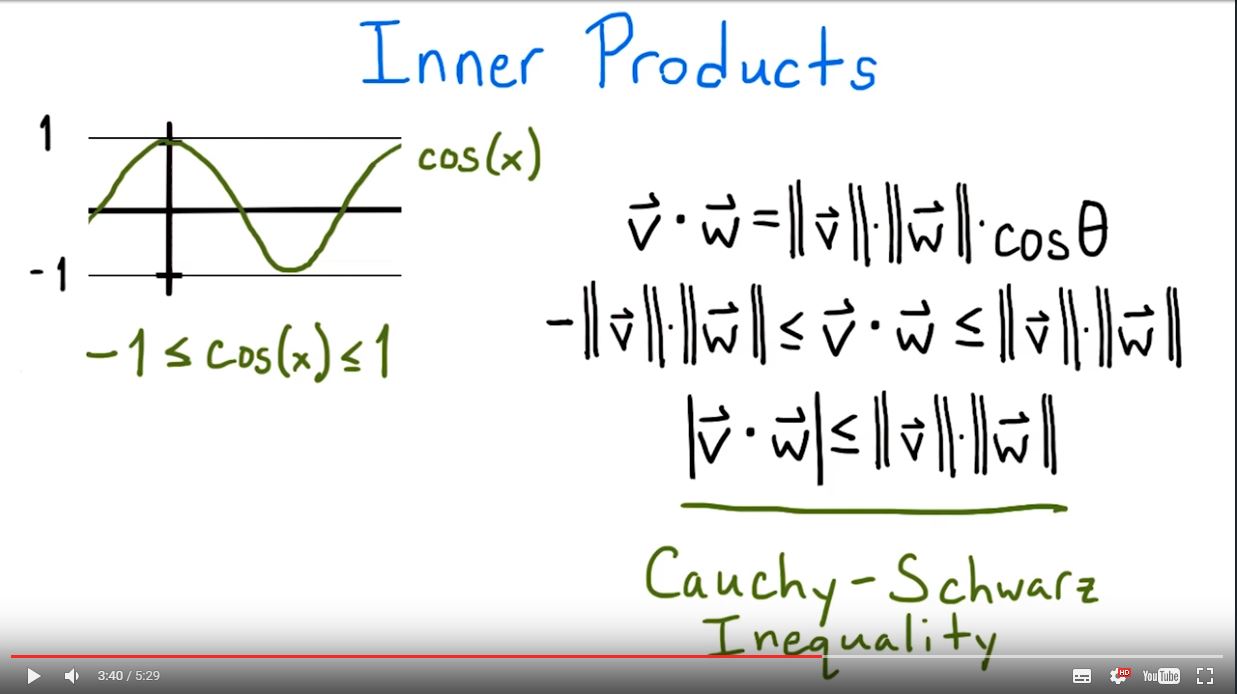 Inner Products
1
cos(x)
-1
-1 ≤ cos(x) ≤ 1
v⃗ · w⃗ = ‖v⃗‖·‖w⃗‖· cos θ
-‖v⃗‖·‖w⃗‖ ≤ v⃗ · w⃗ ≤ ‖v⃗‖·‖w⃗‖
|v⃗ · w⃗| ≤ ‖v⃗‖·‖w⃗‖
Cauchy-Schwarz
Inequality
3:40 / 5:29
HD
YouTube